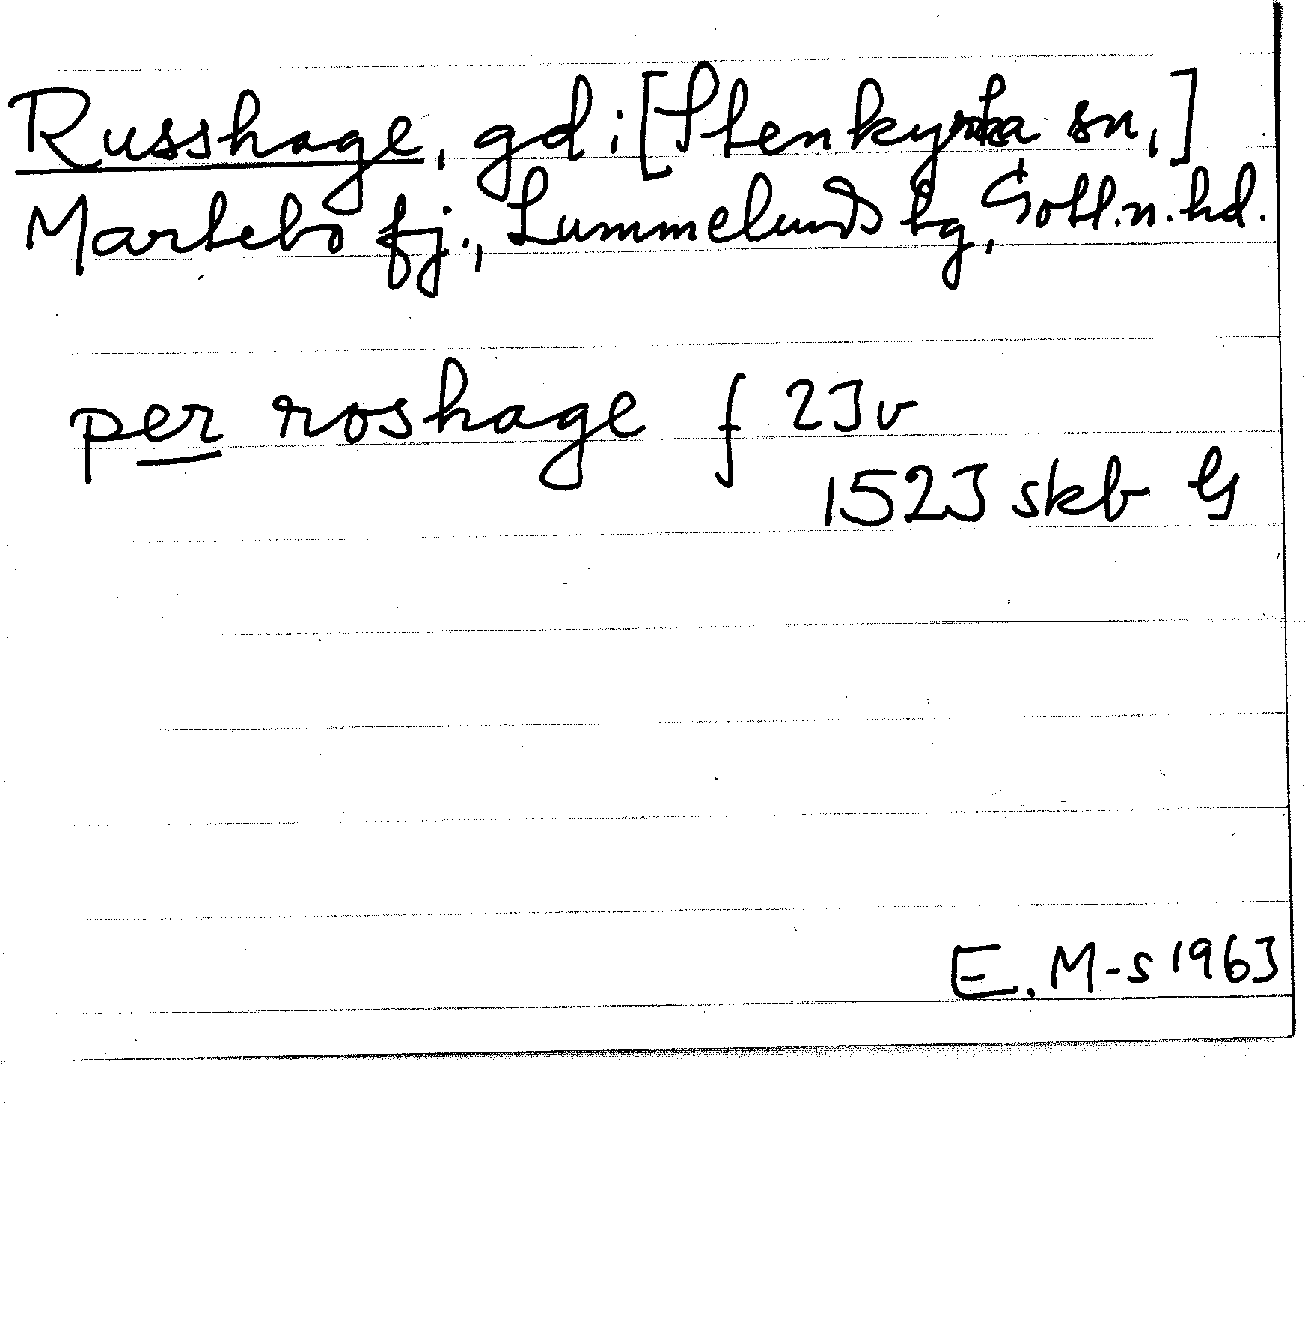 Russhage, gd i [Stenkyrka sn,]
Martebo fj., Lummelunds tg, Gotl. n. hd.
per roshage f 23v
1523 skb G
E. M-s 1963